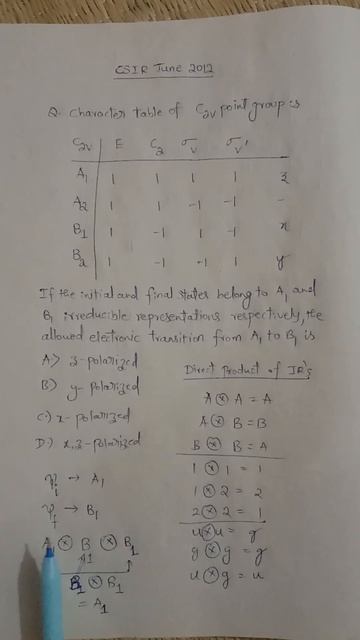 CSIR June 2012
Q. Character table of C2v point group is
C2v E C2 σv σv'
A1 1 1 1 1 z
A2 1 1 -1 -1 -
B1 1 -1 1 -1 x
B2 1 -1 -1 1 y
If the initial and final states belong to A1 and
B1 irreducible representations respectively, the
allowed electronic transition from A1 to B1 is
A) z-polarized
B) y-polarized
C) x-polarized
D) x,z-polarized
ψi → A1
ψf → B1
A ⊗ B ⊗ B1
B1 ⊗ B1
= A1
Direct Product of IR's
A ⊗ A = A
A ⊗ B = B
B ⊗ B = A
1 ⊗ 1 = 1
1 ⊗ 2 = 2
2 ⊗ 2 = 1
u ⊗ u = g
g ⊗ g = g
u ⊗ g = u